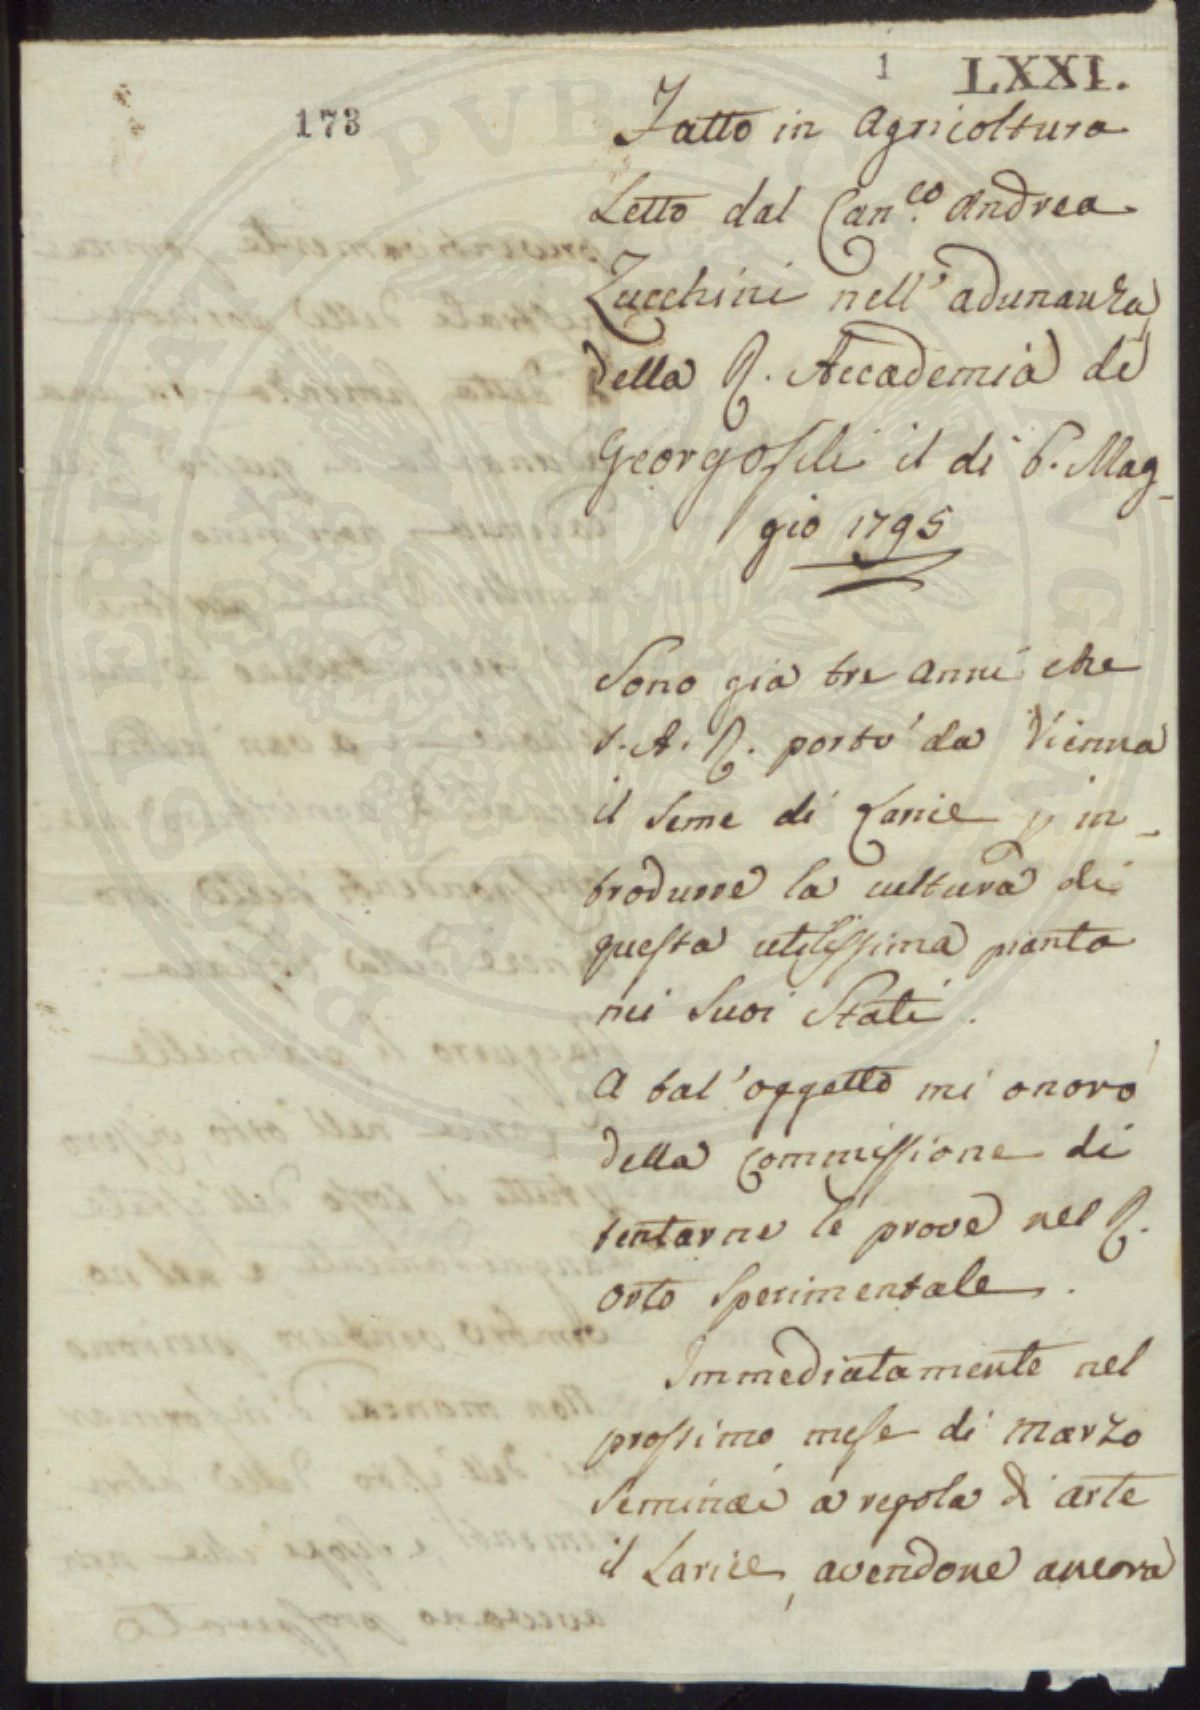 1 LXXI.
173
Fatto in Agricoltura
Letto dal Can.co Andrea
Zucchini nell'adunanza
della R. Accademia de
Georgofili il dì 6. Mag-
gio 1795
Sono già tre anni che
S. A. R. portò da Vienna
il seme di Larice p in-
trodurre la cultura di
questa utilissima pianta
nei suoi Stati.
A tal'oggetto mi onorò
della Commissione di
tentarne le prove nel R.
Orto Sperimentale.
Immediatamente nel
prossimo mese di Marzo
seminai a regola di arte
il Larice, avendone ancora
PROSPERITATI PVBLICAE AVGENDAE